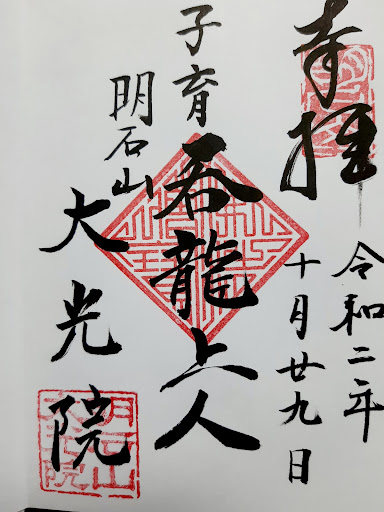 奉拝
令和二年
十月廿九日
子育
呑龍上人
明石山
大光院